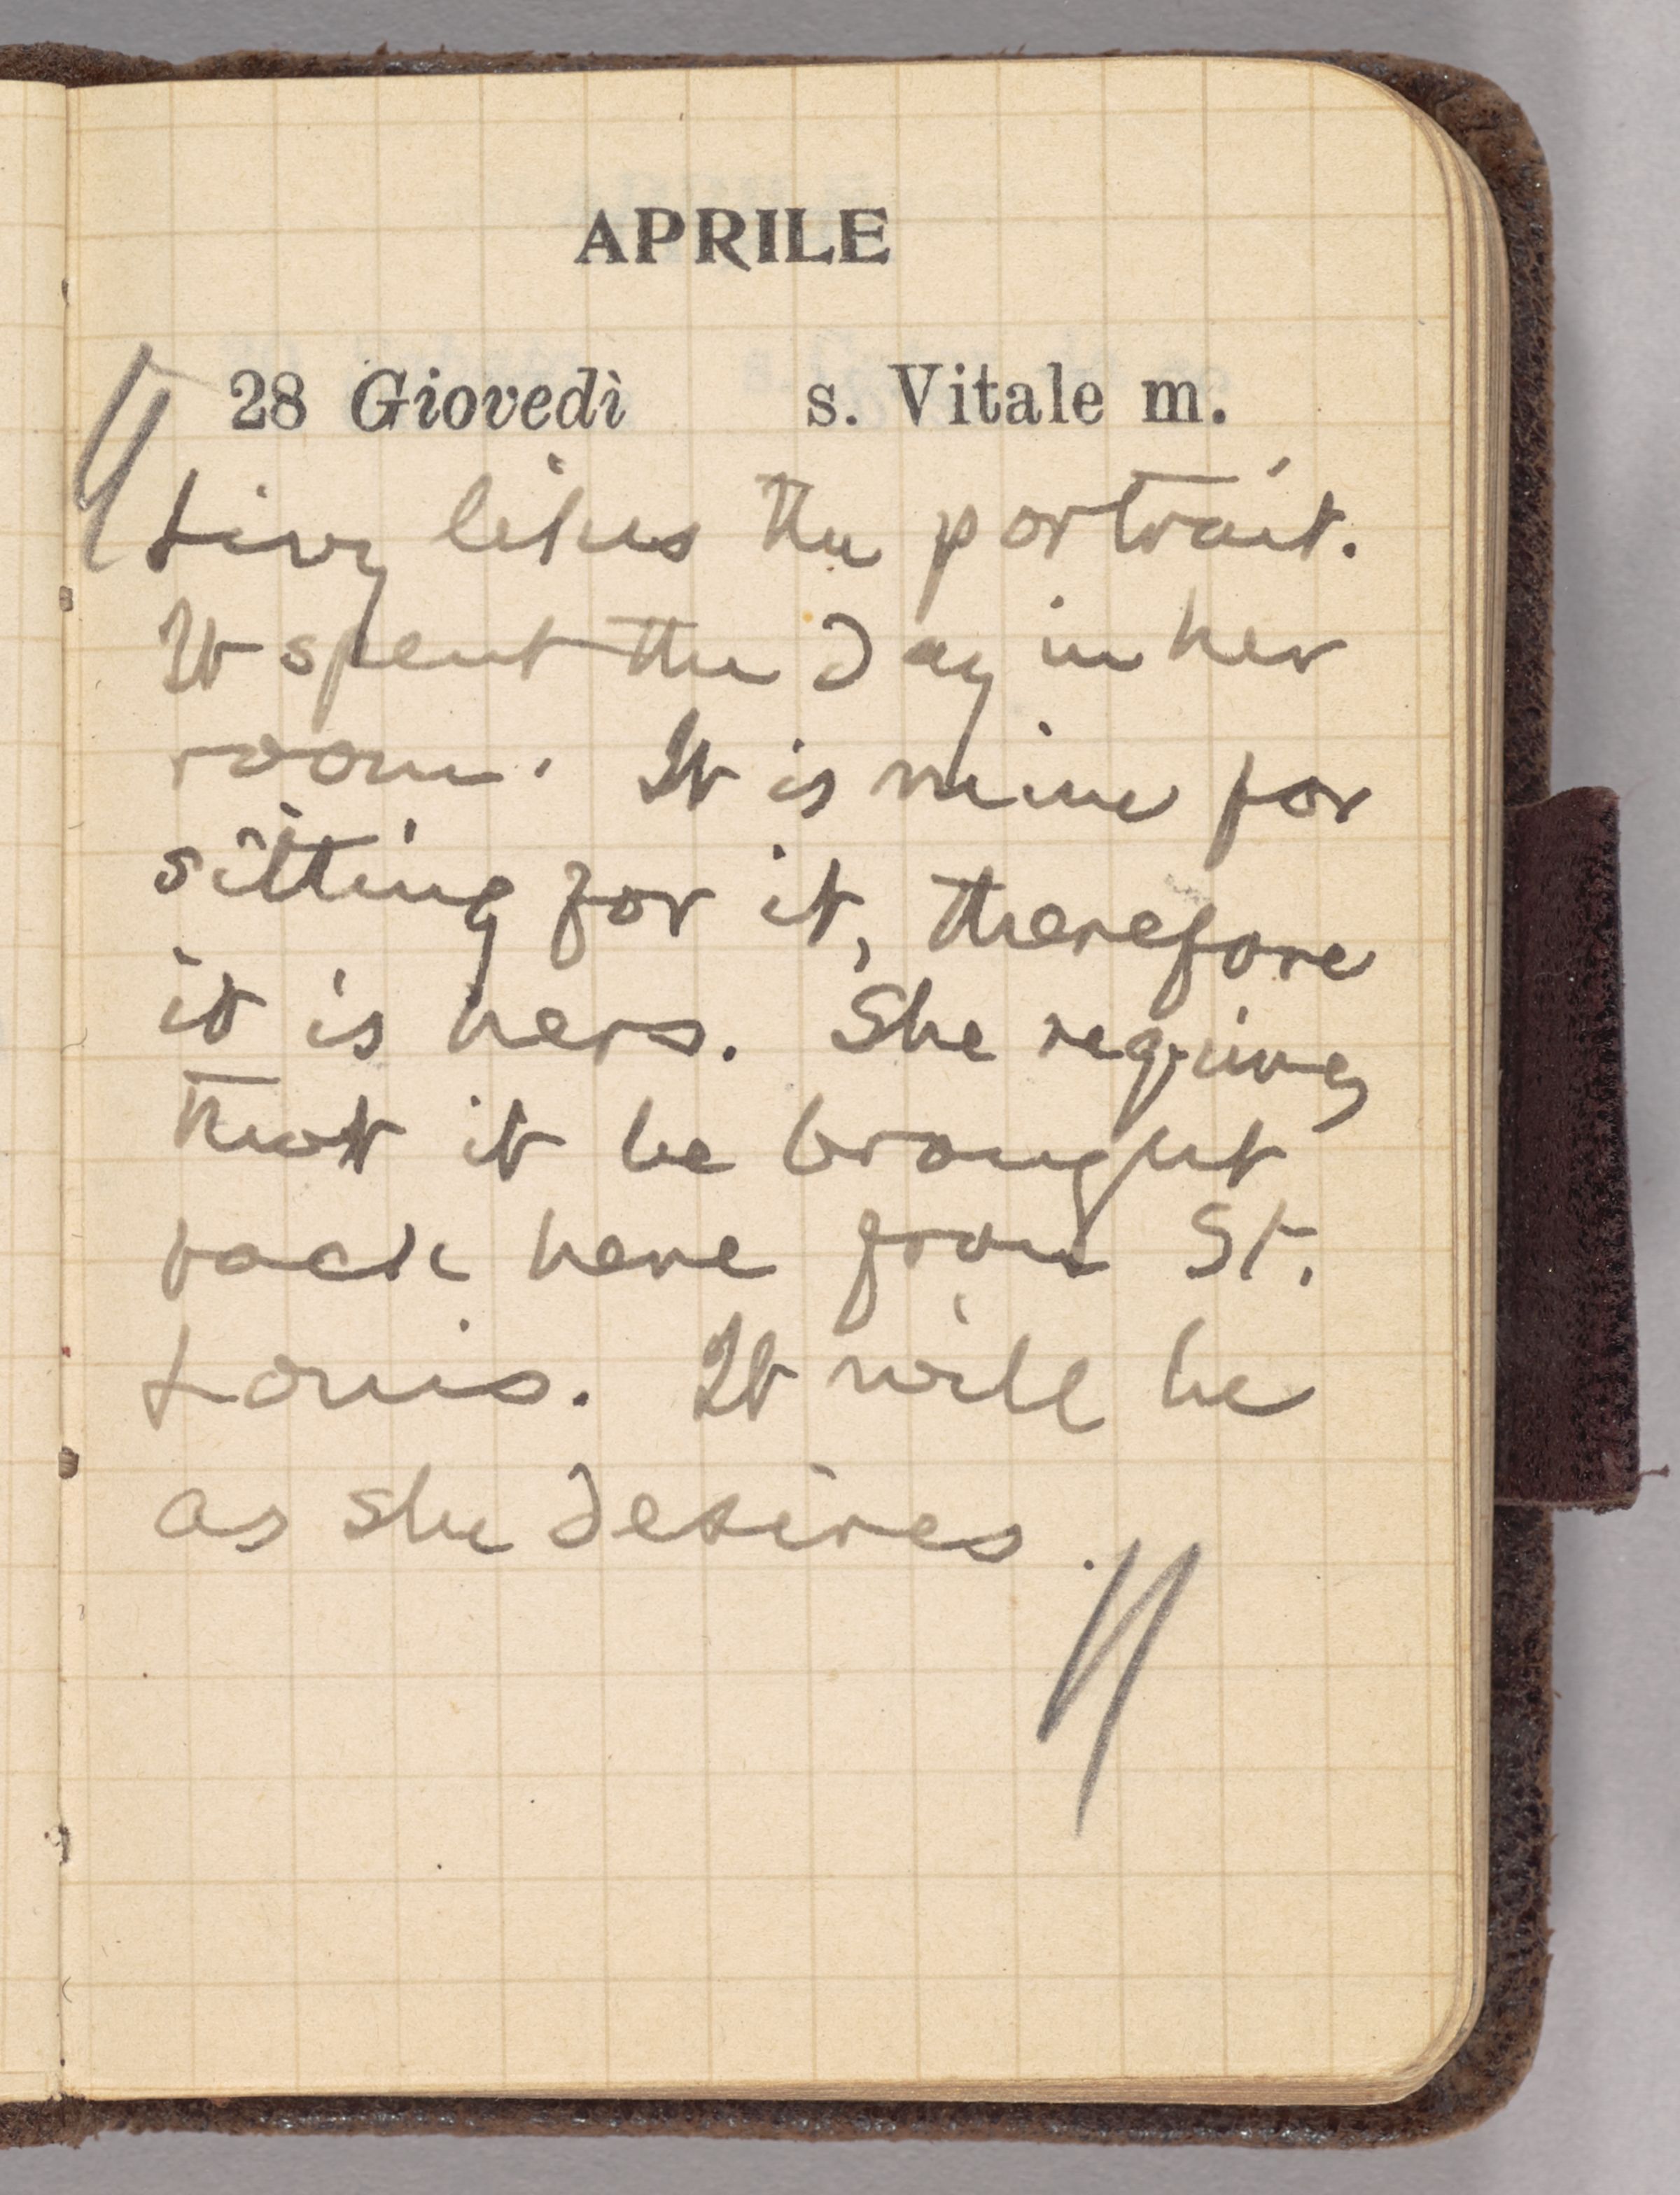 APRILE
28 Giovedì s. Vitale m.
Livy likes the portrait.
It spent the day in her
room. It is mine for
sitting for it, therefore
it is hers. She requires
that it be brought
back here from St.
Louis. It will be
as she desires.